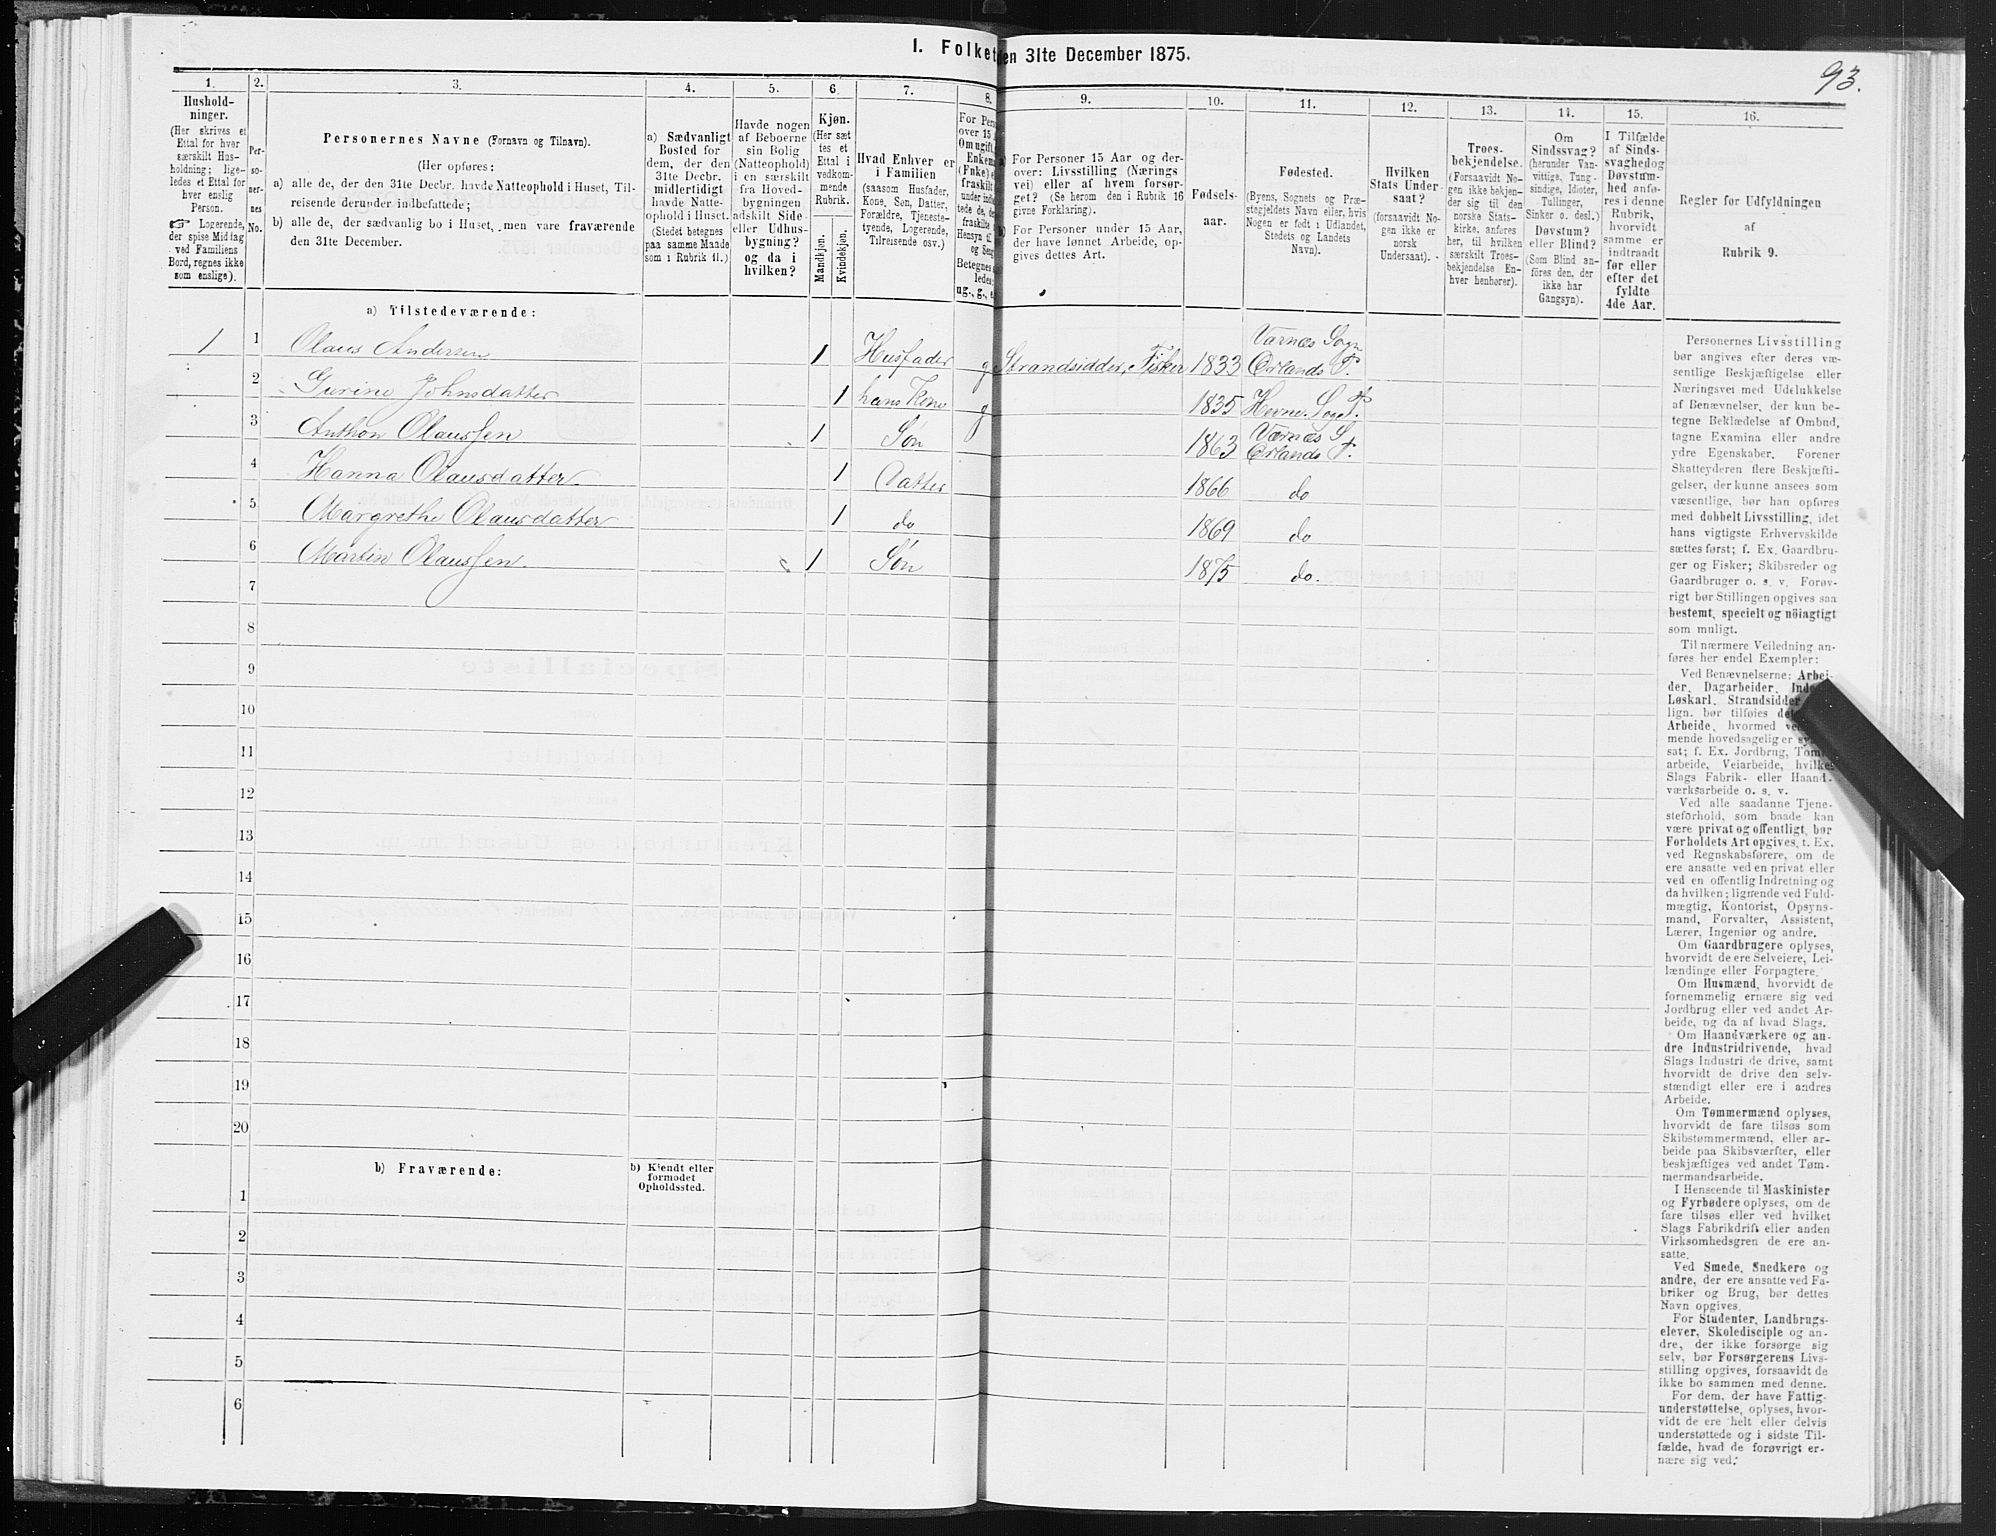 I. Folket en 31te December 1875.
93.
1.
Hushold-
ninger.
(Her skrives et
Ettal for hver
særskilt Hus-
holdning; lige-
ledes et Ettal for
hver enslig
Person.
☞ Logerende,
der spise Middag
ved Familiens
Bord, regnes ikke
som enslige).
2.
Per-
so-
ner-
nes
No.
3.
Personernes Navne (Fornavn og Tilnavn).
(Her opføres:
a) alle de, der den 31te Decbr. havde Natteophold i Huset, Til-
reisende derunder indbefattede;
b) alle de, der sædvanlig bo i Huset, men vare fraværende
den 31te December.
4.
a) Sædvanligt
Bosted for
dem, der den
31te Decbr.
midlertidigt
havde Natte-
ophold i Huset.
(Stedet betegnes
paa samme Maade
som i Rubrik 11.)
5.
Havde nogen
af Beboerne
sin Bolig
(Natteophold)
i en særskilt
fra Hoved-
bygningen
adskilt Side-
eller Udhus-
bygning?
og da i
hvilken?
6.
Kjøn.
(Her sæt
tes et
Ettal i
vedkom-
mende
Rubrik.
Mandkjøn.
Kvindekjøn.
7.
Hvad Enhver er
i Familien
(saasom Husfader,
Kone, Søn, Datter,
Forældre, Tjeneste-
tyende, Logerende,
Tilreisende osv.)
8.
For Pers
over 15
Om ugift,
Enkem
(Fnke)
fraskilt
under ind
tede de, de
fraskilte
Hensyn til
og Seng
Betegnes
ledes:
ug., g., e
9.
a) For Personer 15 Aar og der-
over: Livsstilling (Nærings
vei) eller af hvem forsør-
get? (Se herom den i Rubrik 16
givne Forklaring).
b) For Personer under 15 Aar,
der have lønnet Arbeide, op-
gives dettes Art.
10.
Fødsels-
aar.
11.
Fødested.
(Byens, Sognets og Præ-
stegjeldets Navn eller, hvis
Nogen er født i Udlandet,
Stedets og Landets
Navn).
12.
Hvilken
Stats Under-
saat?
(forsaavidt No-
gen ikke er
norsk
Undersaat).
13.
Troes-
bekjendelse.
(Forsaavidt No-
gen ikke bekjen-
der sig til den
norske Stats-
kirke, anføres
her, til hvilken
særskilt Troes-
bekjendelse En-
hver henhører).
14.
Om
Sindssvag?
(herunder Van-
vittige, Tung-
sindige, Idioter,
Tullinger,
Sinker o. desl.)
Døvstum?
eller Blind?
(Som Blind an-
føres den, der
ikke har
Gangsyn).
15.
I Tilfælde
af Sinds-
svaghed og
Døvstum-
hed anfø-
res i denne
Rubrik,
hvorvidt
samme er
indtraadt
før eller
efter det
fyldte
4de Aar.
16.
Regler for Udfyldningen
af
Rubrik 9.
a) Tilstedeværende:
1 1 Olaus Andersen 1 Husfader g Strandsidder, Fisker 1833 Værnæs Sogn
Ørlands P.
2 Gurine Johnsdatter 1 hans Kone g 1835 Hevne. Sogn P.
3 Anthon Olaussen 1 Søn 1863 Værnæs S
Ørlands P.
4 Hanna Olausdatter 1 Datter 1866 do
5 Margrethe Olausdatter 1 do 1869 do
6 Martin Olaussen 1 Søn 1875 do.
7
8
9
10
11
12
13
14
15
16
17
18
19
20
b) Fraværende:
b) Kjendt eller
formodet
Opholdssted.
1
2
3
4
5
6
Personernes Livsstilling
bør angives efter deres væ-
sentlige Beskjæftigelse eller
Næringsvei med Udelukkelse
af Benævnelser, der kun be-
tegne Beklædelse af Ombud,
tagne Examina eller andre
ydre Egenskaber. Forener
Skatteyderen flere Beskjæfti-
gelser, der kunne ansees som
væsentlige, bør han opføres
med dobbelt Livsstilling, idet
hans vigtigste Erhvervskilde
sættes først; f. Ex. Gaardbru-
ger og Fisker; Skibsreder og
Gaardbruger o. s. v. Forøv-
rigt bør Stillingen opgives saa
bestemt, specielt og nöiagtigt
som muligt.
Til nærmere Veiledning an-
føres her endel Exempler:
Ved Benævnelserne: Arbei-
der, Dagarbeider, Inde
Løskarl, Strandsidder
lign. bør tilføies det
Arbeide, hvormed ve
mende hovedsagelig er sy
sat; f. Ex. Jordbrug, Tøm
arbeide, Veiarbeide, hvilket
Slags Fabrik- eller Haand-
værksarbeide o. s. v.
Ved alle saadanne Tjene-
steforhold, som baade kan
være privat og offentligt, bør
Forholdets Art opgives, t. Ex.
ved Regnskabsførere, om de
ere ansatte ved en privat eller
ved en offentlig Indretning og
da hvilken; lignende ved Fuld-
mægtig, Kontorist, Opsyns-
mand, Forvalter, Assistent,
Lærer, Ingeniør og andre.
Om Gaardbrugere oplyses,
hvorvidt de ere Selveiere, Lei-
lændinge eller Forpagtere.
Om Husmænd, hvorvidt de
fornemmelig ernære sig ved
Jordbrug eller ved andet Ar-
beide, og da af hvad Slags.
Om Haandværkere og an-
dre Industridrivende, hvad
Slags Industri de drive, samt
hvorvidt de drive den selv-
stændigt eller ere i andres
Arbeide.
Om Tømmermænd oplyses,
hvorvidt de fare tilsøs som
Skibstømmermænd, eller ar-
beide paa Skibsværfter, eller
beskjæftiges ved andet Tøm-
mermandsarbeide.
I Henseende til Maskinister
og Fyrbødere oplyses, om de
fare tilsøs eller ved hvilket
Slags Fabrikdrift eller anden
Virksomhedsgren de ere an-
satte.
Ved Smede, Snedkere og
andre, der ere ansatte ved Fa-
briker og Brug, bør dettes
Navn opgives.
For Studenter, Landbrugs-
elever, Skoledisciple og an-
dre, der ikke forsørge sig
selv, bør Forsørgerens Livs-
stilling opgives, forsaavidt de
ikke bo sammen med denne.
For dem, der have Fattig-
understøttelse, oplyses, hvor-
vidt de ere helt eller delvis
understøttede og i sidste Til-
fælde, hvad de forøvrigt er-
nære sig ved.